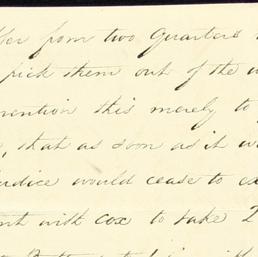 from two Quarters
pick them out of the
mention this merely to
, that as soon as it
would cease to
with Cox to take 2